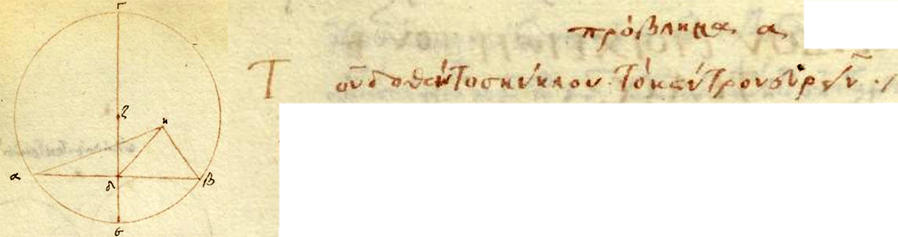 πρόβλημα α
Τοῦ δοθέντος κύκλου τὸ κέντρον εὑρεῖν
Γ
ζ
η
α
δ
β
ε